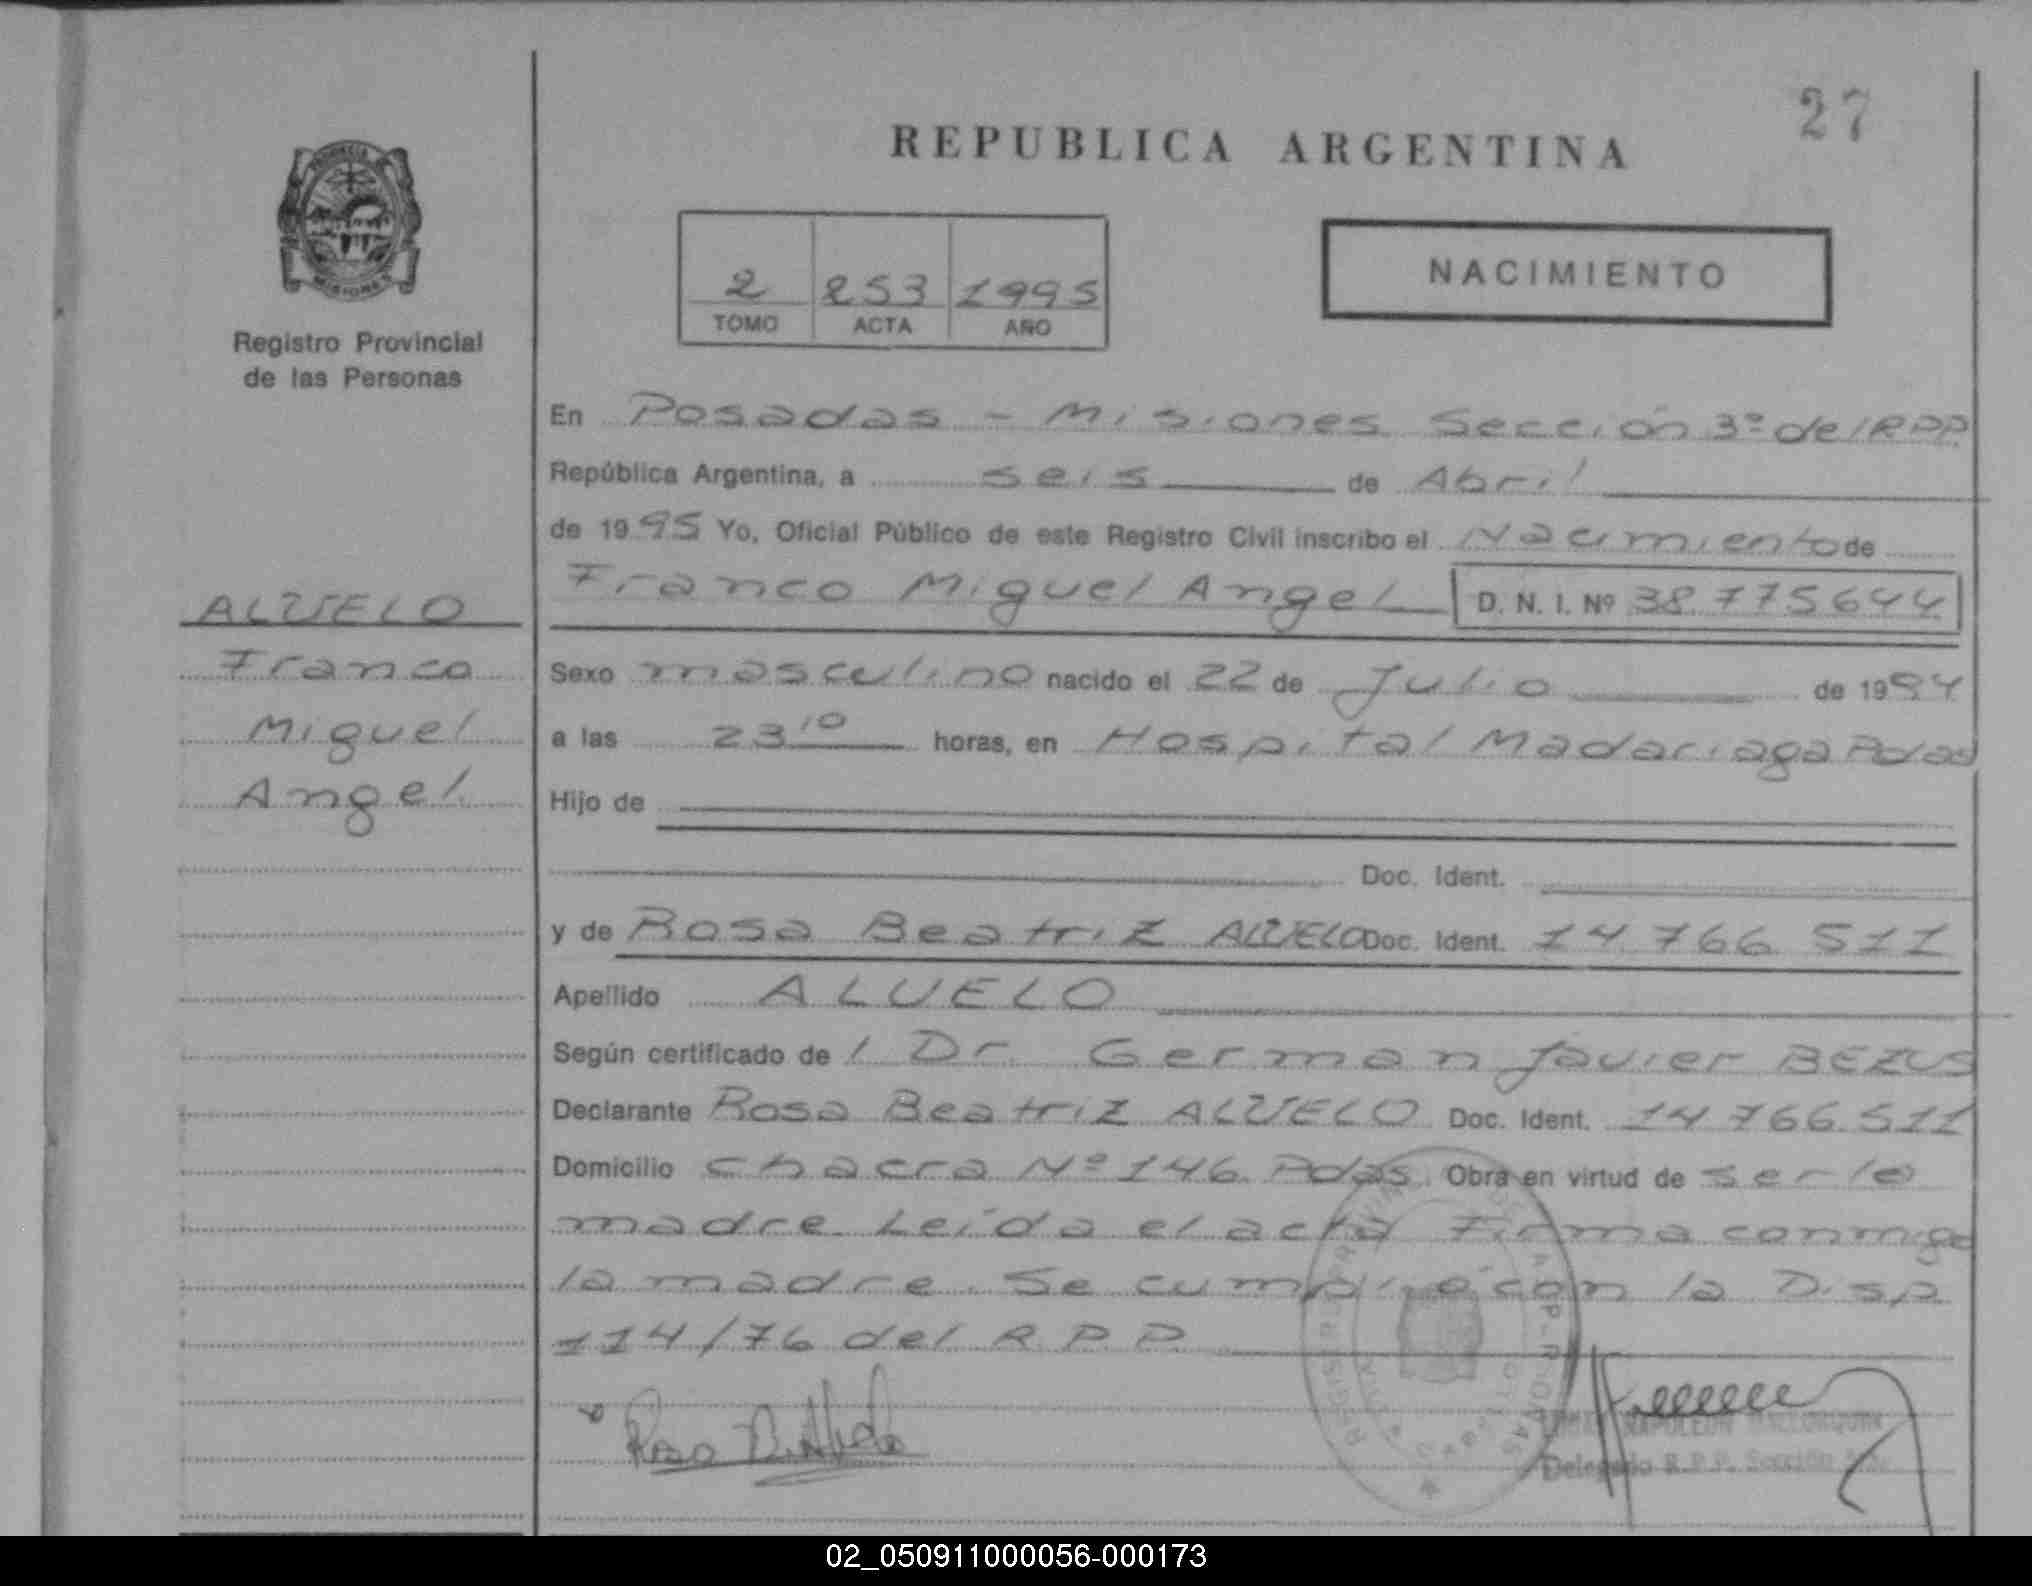 27
REPUBLICA ARGENTINA
PROVINCIA DE
MISIONES
Registro Provincial
de las Personas
NACIMIENTO
2 253 1995
TOMO ACTA AÑO
En Posadas - Misiones Sección 3ª del R.P.P.
República Argentina, a seis de Abril
de 1995 Yo, Oficial Público de este Registro Civil inscribo el Nacimiento de
Franco Miguel Angel D. N. I. Nº 38.775644
ALVELO
Franco
Miguel
Angel.
Sexo masculino nacido el 22 de Julio de 1994
a las 23 10 horas, en Hospital Madariaga Pdas
Hijo de
Doc. Ident.
y de Rosa Beatriz ALVELO Doc. Ident. 14.766.511
Apellido ALVELO
Según certificado de l Dr. German Javier BEZUS
Declarante Rosa Beatriz ALVELO Doc. Ident. 14.766.511
Domicilio Chacra Nº 146. Pdas. Obra en virtud de ser la
madre. Leída el acta Firma conmigo
la madre. Se cumplió con la Disp.
114/76 del R.P.P.
Rosa B. Alvelo
NAPOLEON
Delegado R.P.P. Sección
02_050911000056-000173